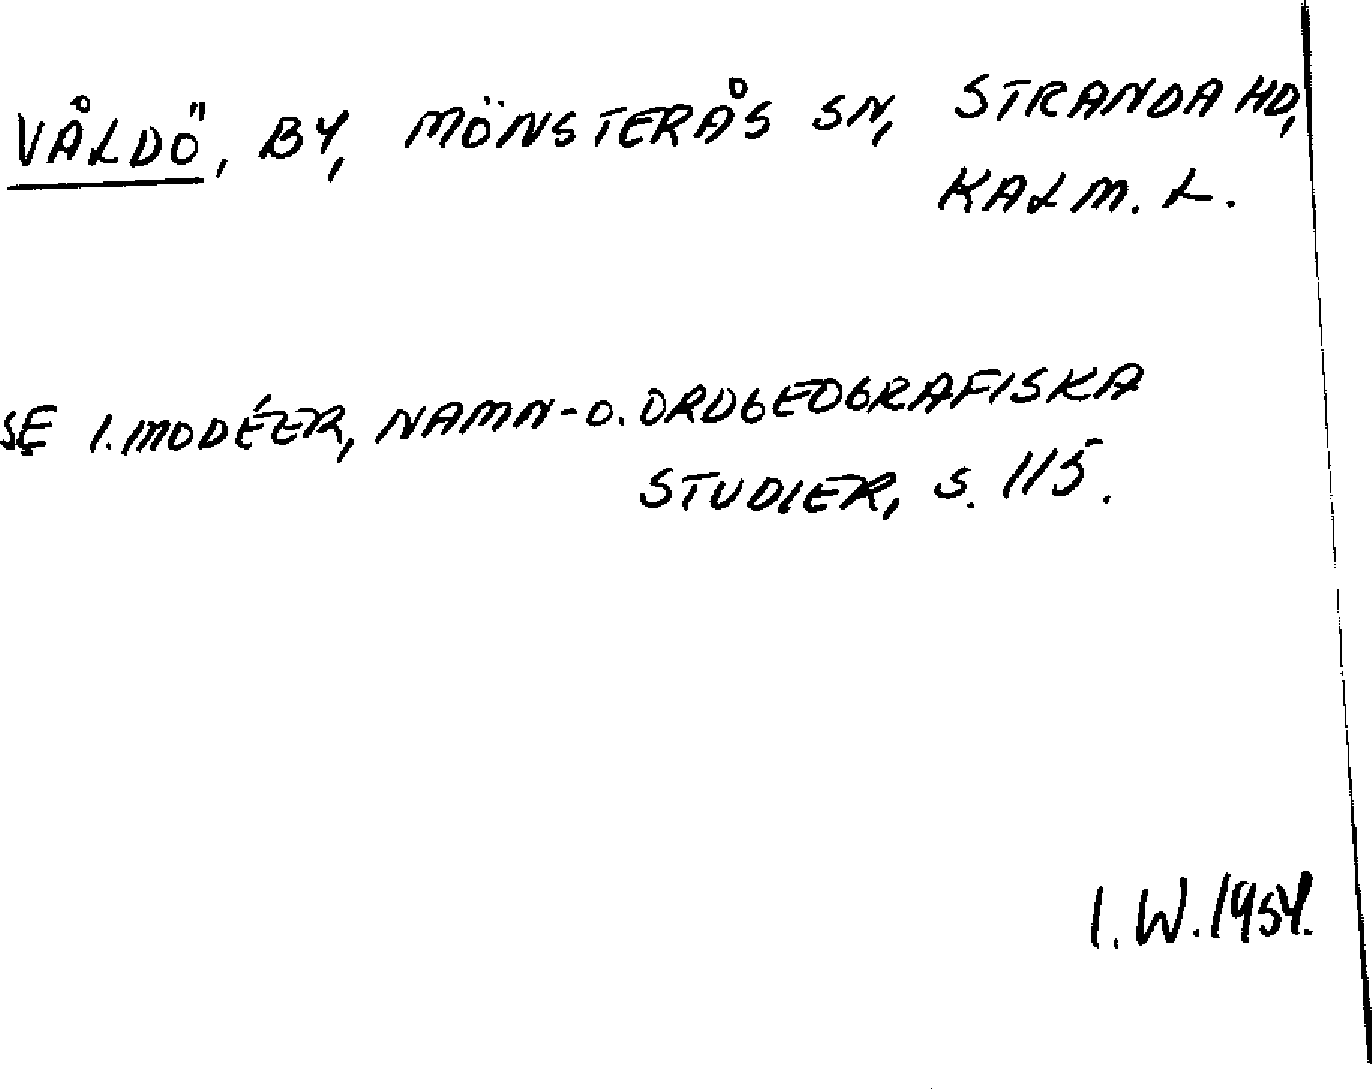 VÅLDÖ, BY, MÖNSTERÅS SN, STRANDA HD,
KALM. L.
SE I. MODÉER, NAMN- O. ORDGEOGRAFISKA
STUDIER, S. 115.
I. W. 1954.